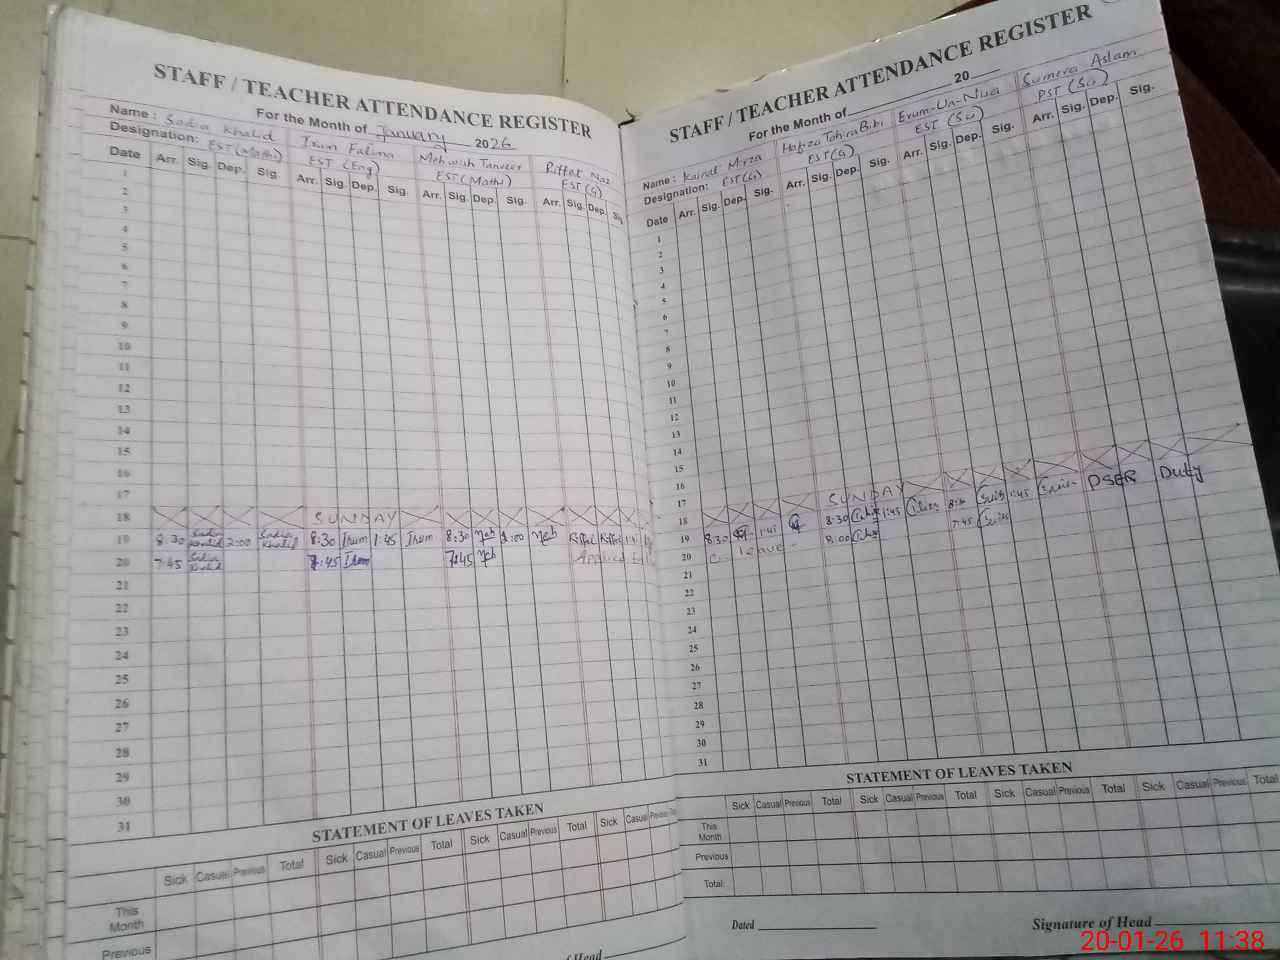 STAFF / TEACHER ATTENDANCE REGISTER
For the Month of January 2026
Name : Sadia Khalid Irum Fatima Mehwish Tanveer Riffat Naz
Designation: EST (Math) EST (Eng) EST (Math) EST (G)
Date Arr. Sig. Dep. Sig. Arr. Sig. Dep. Sig. Arr. Sig. Dep. Sig. Arr. Sig. Dep. Sig.
1
2
3
4
5
6
7
8
9
10
11
12
13
14
15
16
17
18 SUNDAY
19 8:30 Sadia Khalid 2:00 Sadia Khalid 8:30 Irum 1:45 Irum 8:30 Meh 2:00 Meh Riffat Riffat
20 7:45 Sadia Khalid 7:45 Irum 7:45 Meh Applied
21
22
23
24
25
26
27
28
29
30
31
STATEMENT OF LEAVES TAKEN
Sick Casual Previous Total Sick Casual Previous Total Sick Casual Previous Total Sick Casual Previous
This Month
Previous
of Head
STAFF / TEACHER ATTENDANCE REGISTER
For the Month of 20
Name : Kainat Mirza Hafiza Tahira Bibi Erum-Un-Nisa Sumera Aslam
Designation: EST (G) EST (G) EST (Sci) PST (Sci)
Date Arr. Sig. Dep. Sig. Arr. Sig. Dep. Sig. Arr. Sig. Dep. Sig. Arr. Sig. Dep. Sig.
1
2
3
4
5
6
7
8
9
10
11
12
13
14
15
16
17
18 SUNDAY
19 8:30 8:30 1:45 1:45 PSER Duty
20 leave 8:00 7:45
21
22
23
24
25
26
27
28
29
30
31
STATEMENT OF LEAVES TAKEN
Sick Casual Previous Total Sick Casual Previous Total Sick Casual Previous Total Sick Casual Previous Total
This Month
Previous
Total:
Dated Signature of Head
20-01-26 11:38